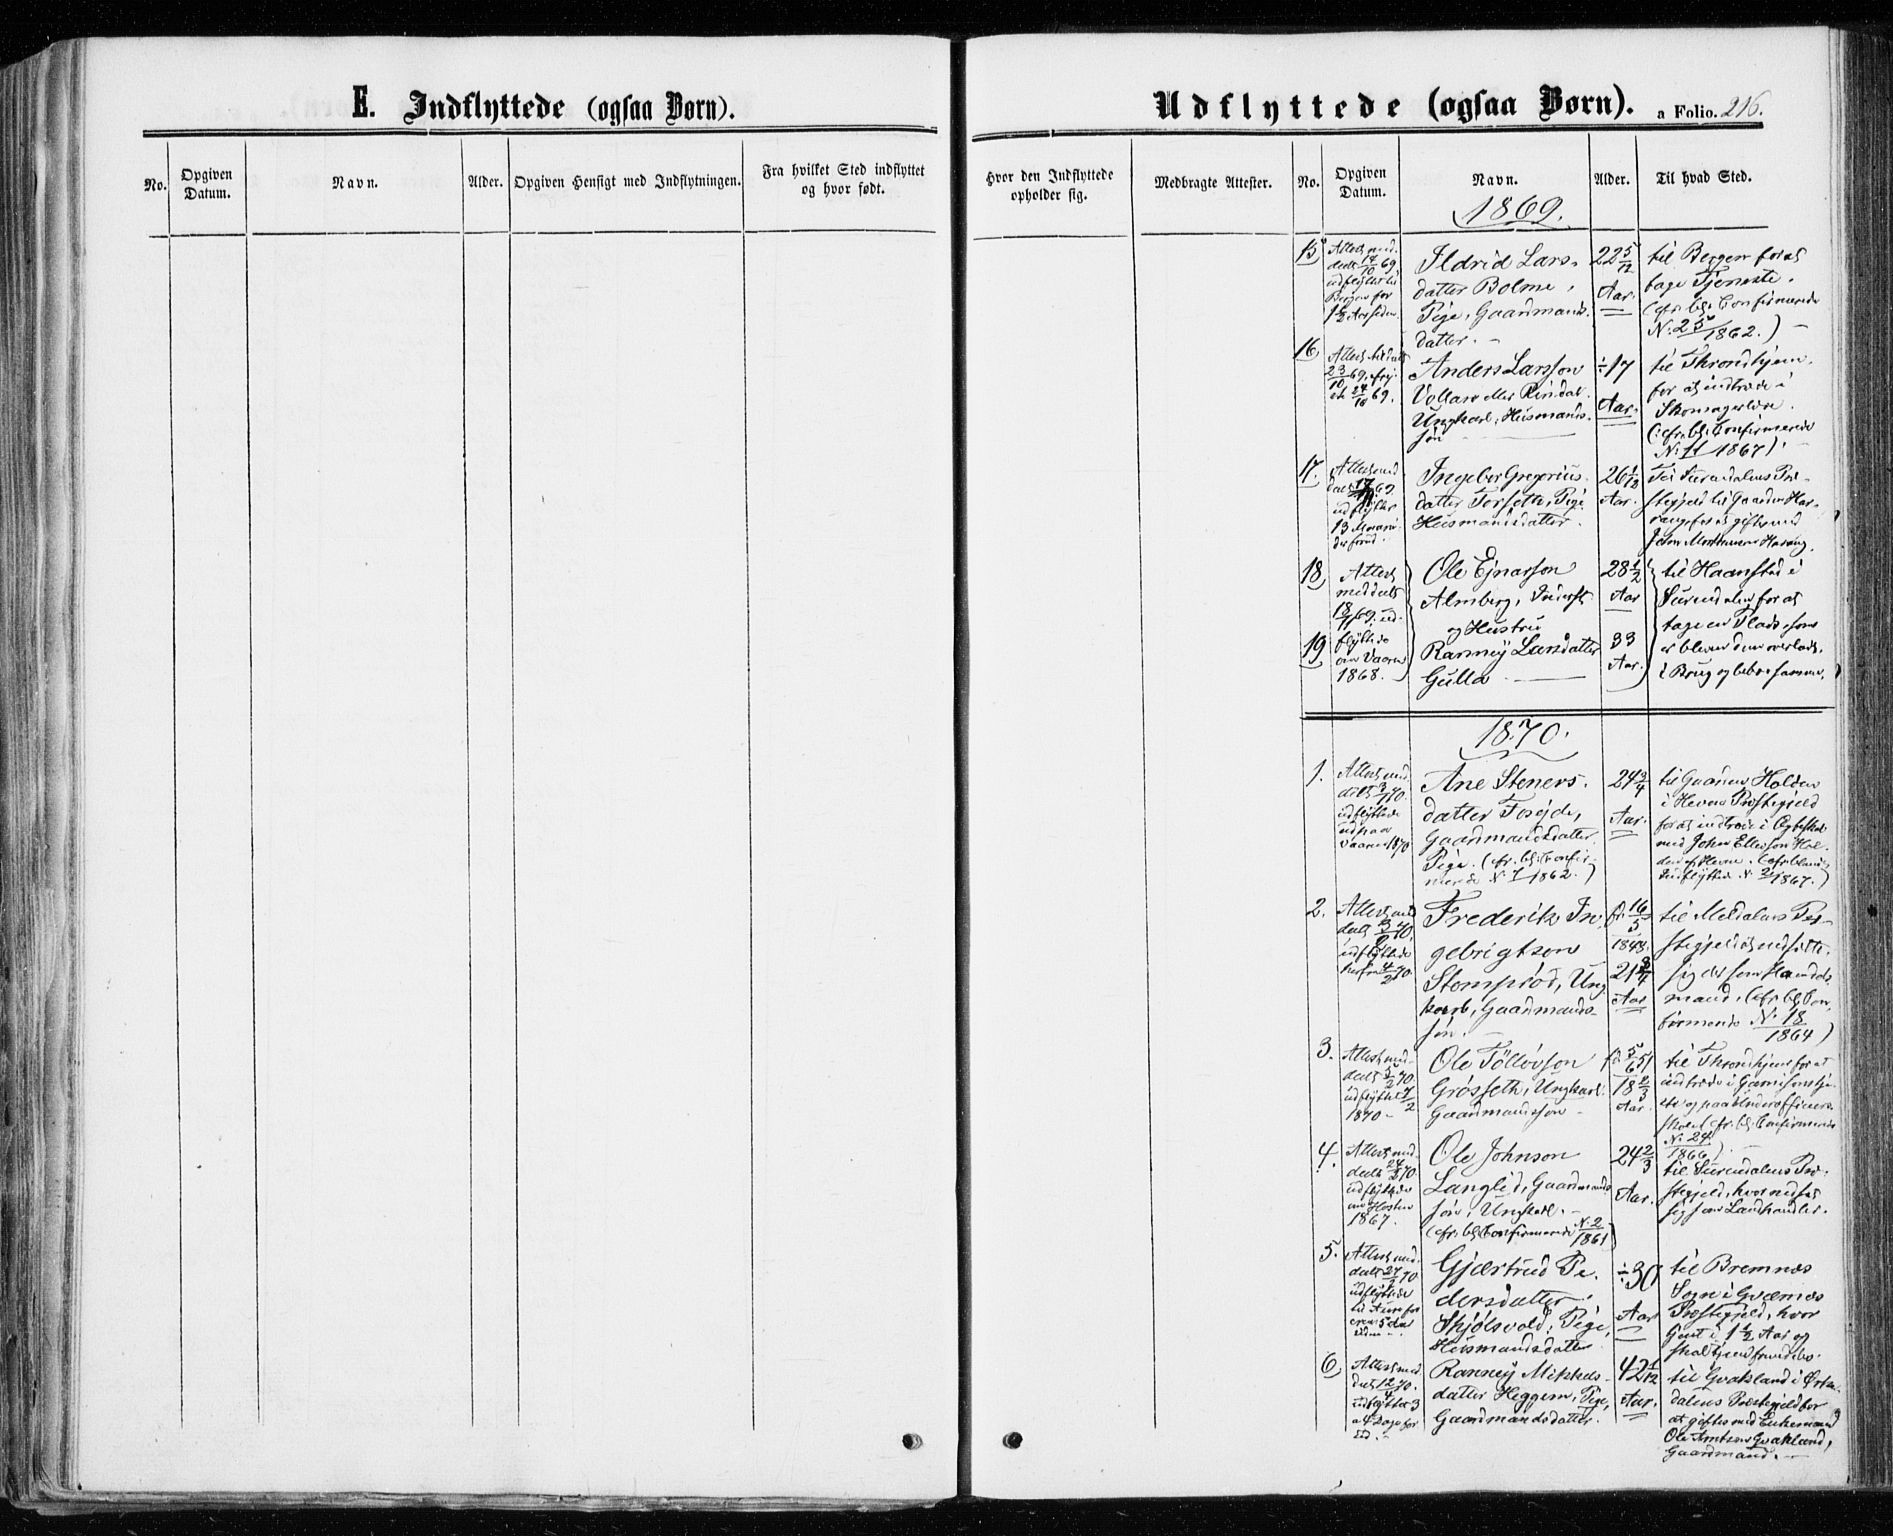 E. Indflyttede (ogsaa Børn).
No.
Opgiven Datum.
Navn.
Alder.
Opgiven Hensigt med Indflytningen.
Fra hvilket Sted indflyttet
og hvor født.
Udflyttede (ogsaa Børn). a Folio. 216.
Hvor den Indflyttede
opholder sig.
Medbragte Attester.
No.
Opgiven
Datum.
Navn.
Alder.
Til hvad Sted.
1869.
15
Attest med-
delt 14/10 69,
udflyttet til
Bergen for
1½ Aar siden.
Ildrid Lars-
datter Bolme,
Pige, Gaardmands-
datter.
22 5/12
Aar.
til Bergen for at
tage Tjeneste.
(cfr. bl. Confirmerede
N. 25/1862.)
16
23/10 69
24/10 69.
Anders Larsson
Vollan eller Rindal
Ungkarl, Husmands-
søn
÷17
Aar.
til Throndhjem
for at indtræde i
Skomagerlære.
(cfr. bl. Confirmerede
N. 11/1867).
17.
Attest med-
delt
udflyttet
13
Ingebor Gregorius-
datter Torseth, Pige
Husmandsdatter.
26 1/12
Aar.
Til Surendalens Præ-
stegjeld til Gaarden Har-
ang for at giftes med
John Mortensen Harang.
18
Attest
meddelt
18/11 69, ud-
flyttede
om Vaaren
1868.
Ole Ejnarson
Almberg, Inderst
og Hustru
28 ½
Aar
til Haanstad i
Surendalen for at
tage en Plads, som
er bleven dem overladt
i Brug og
19
Ranney Larsdatter
Gulla
33
Aar.
1870.
1.
Attest med-
delt 3/1 70.
udflyttede
ud paa
Vaaren 1870
Ane Steners-
datter Fosøjde,
Gaardmandsdatter
Pige. (cfr. bl. Confir-
merede N. 7/1862.)
24 3/4
Aar.
til Gaarden Holden
i Hevne Præstegjeld
for at indtræde i Ægteskab
med John Ellefson Hol-
den af Hevne. (cfr. blandt
Indflyttede N. 2/1867.)
2.
Attest med-
delt 3/2 70.
udflyttede
herfra 4/2 70.
Frederik In-
gebrigtson
Stomprød, Ung-
karl, Gaardmands-
søn.
fd. 16/5
1848.
21 3/4
Aar
til Meldalens Præ-
stegjeld at nedsætte
sig der som Handels-
mand, (cfr. bl. Con-
firmerede N. 18/1864)
3.
Attest med-
delt 5/2 70
udflyttet 7/2
1870
Ole Tøllevson
Grøsseth, Ungkarl.
Gaardmandssøn
fd. 5/6 51
18 2/3
Aar.
til Throndhjem for at
indtræde i Garnisonstje-
ste og paa Underofficeers-
skolen cfr. bl. Confirmerede
N. 24/1866)
4.
Attest med-
delt 24/2 70
udflyttede
om Høsten
1867.
Ole Johnson
Langlid, Gaardmands-
søn, Ungkarl.
(cfr. bl. Confirmerede N. 2/1861)
24 2/3
Aar.
til Surendalens Præ-
stegjeld, hvor nedsat
sig som Landhandler.
5.
Attest med-
delt 27/2 70
udflyttede
til Aure for
circa 5 Aar
siden
Gjærtrud Pe-
dersdatter
Skjølsvold, Pige,
Husmandsdatter
÷30
Aar
til Bremnæs
Sogn i Qværnæs
Præstegjeld, hvor
tjent i 1½ Aar og
skal tjene fremdeles.
6
Attest med-
delt 12/4 70.
udflyttet 3
a 4 Dage for
ud.
Ranney Mikkels-
datter Heggem, Pige,
Gaardmandsdatter.
42 1/12
Aar.
til Qvakland i Ørke-
dalens Præstegjeld for
at giftes med Enkemand
Ole Arntsen Qvakland,
Gaardmand.